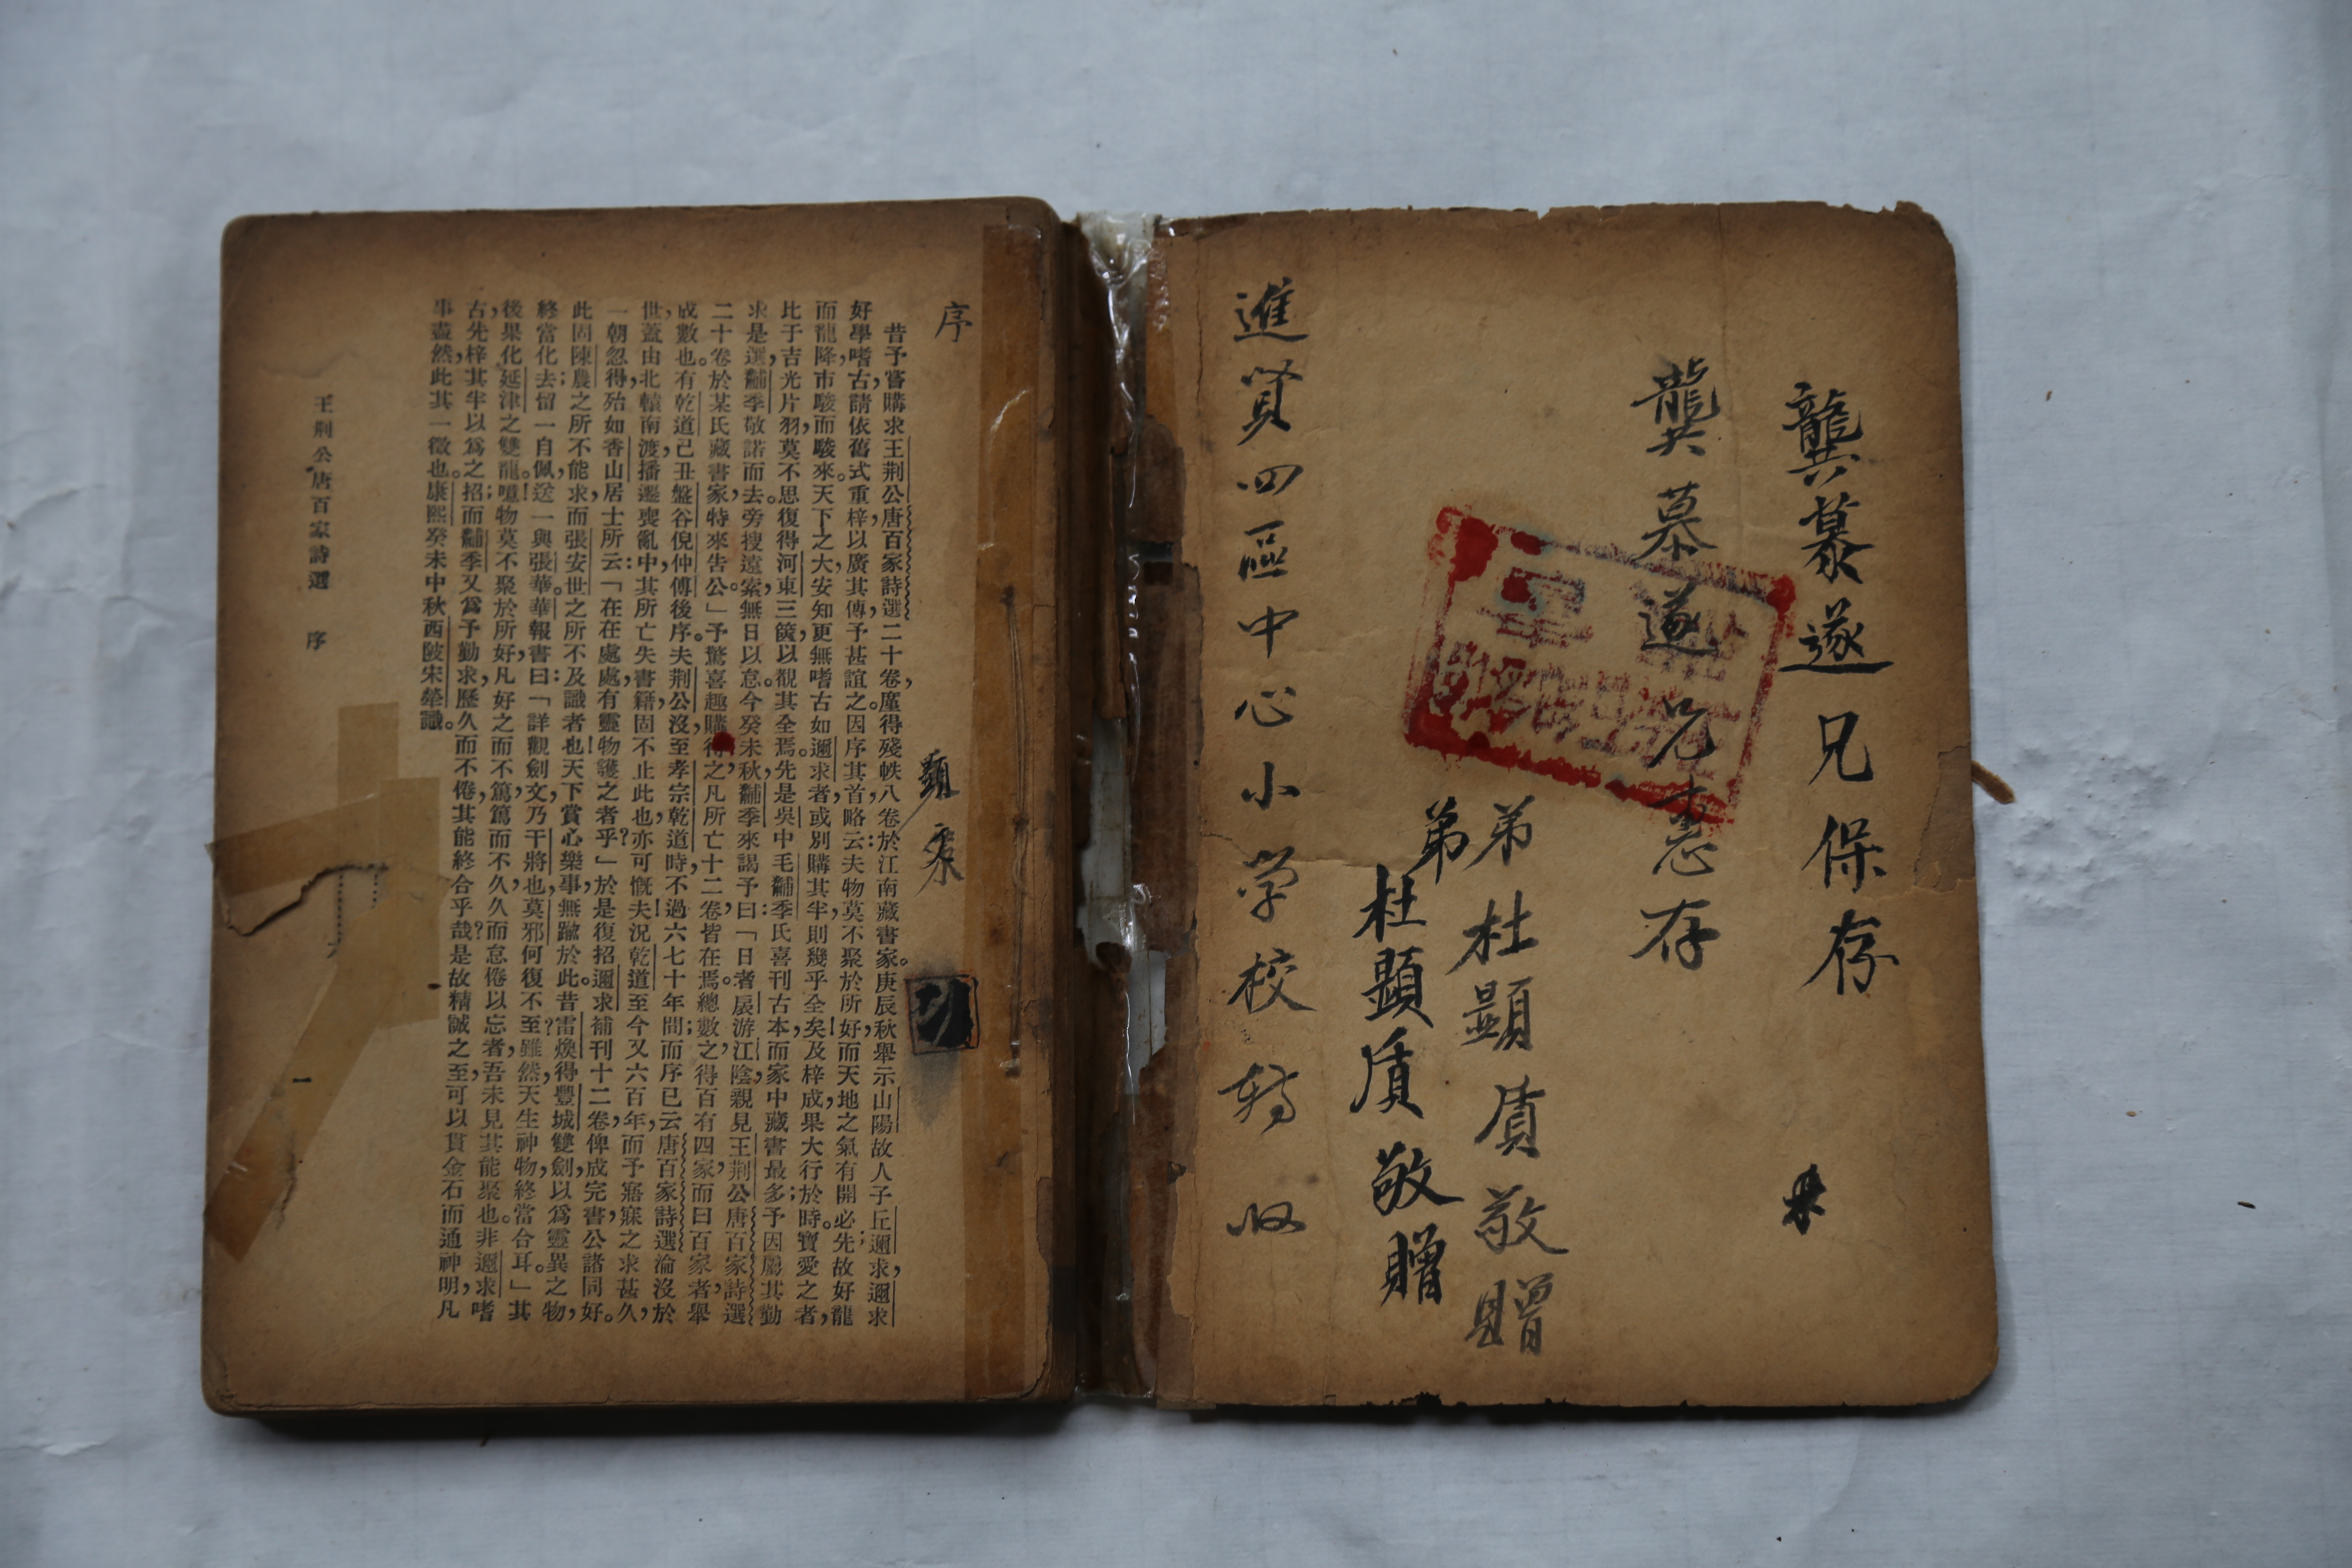 龔慕遂兄保存
龔慕遂兄惠存
弟杜顯質敬贈
弟杜顯質敬贈
進賢四區中心小学校轉收
序
顯
昔予嘗購求王荆公唐百家詩選二十卷,廑得殘帙八卷於江南藏書家。庚辰秋舉示山陽故人子丘邇求,邇求
好學嗜古,請依舊式重梓,以廣其傳,予甚誼之。因序其首,略云:夫物莫不聚於所好,而天地之氣有開必先;故好龍
而龍降,市駿而駿來。天下之大,安知更無嗜古如邇求者,或別購其半,則幾乎全矣!及梓成,果大行於時。寶愛之者,
比于吉光片羽,莫不思復得河東三篋,以觀其全焉。先是吳中毛黼季氏喜刊古本,而家中藏書最多;予因屬其勤
求是選,黼季敬諾而去。旁搜遠索,無日以怠。今癸未秋,黼季來謁予曰:「日者扆游江陰,親見王荆公唐百家詩選
二十卷於某氏藏書家,特來告公。」予驚喜趣購得之,凡所亡十二卷,皆在焉;總數之,得百有四家,而曰百家者,舉
成數也。有乾道己丑盤谷倪仲傅後序。夫荆公沒,至孝宗乾道時,不過六七十年間,而序已云唐百家詩選淪沒於
世,蓋由北轅南渡,播遷喪亂中,其所亡失書籍,固不止此也,亦可慨夫!況乾道至今又六百年,而予寤寐之求甚久,
一朝忽得,殆如香山居士所云:「在在處處,有靈物護之者乎?」於是復招邇求補刊十二卷,俾成完書,公諸同好。
此固陳農之所不能求,而張安世之所不及識者也!天下賞心樂事,無踰於此。昔雷煥得豐城雙劍,以爲靈異之物,
終當化去;留一自佩,送一與張華。華報書曰:「詳觀劍文,乃干將也,莫邪何復不至?雖然,天生神物,終當合耳。」其
後果化延津之雙龍。噫!物莫不聚於所好,凡好之而不篤,篤而不久,久而怠倦以忘者,吾未見其能聚也。非邇求嗜
古,先梓其半以爲之招;而黼季又爲予勤求,歷久而不倦,其能終合乎哉?是故精誠之至,可以貫金石而通神明,凡
事盡然,此其一徵也。康熙癸未中秋西陂宋犖識。
王荆公唐百家詩選 序
一